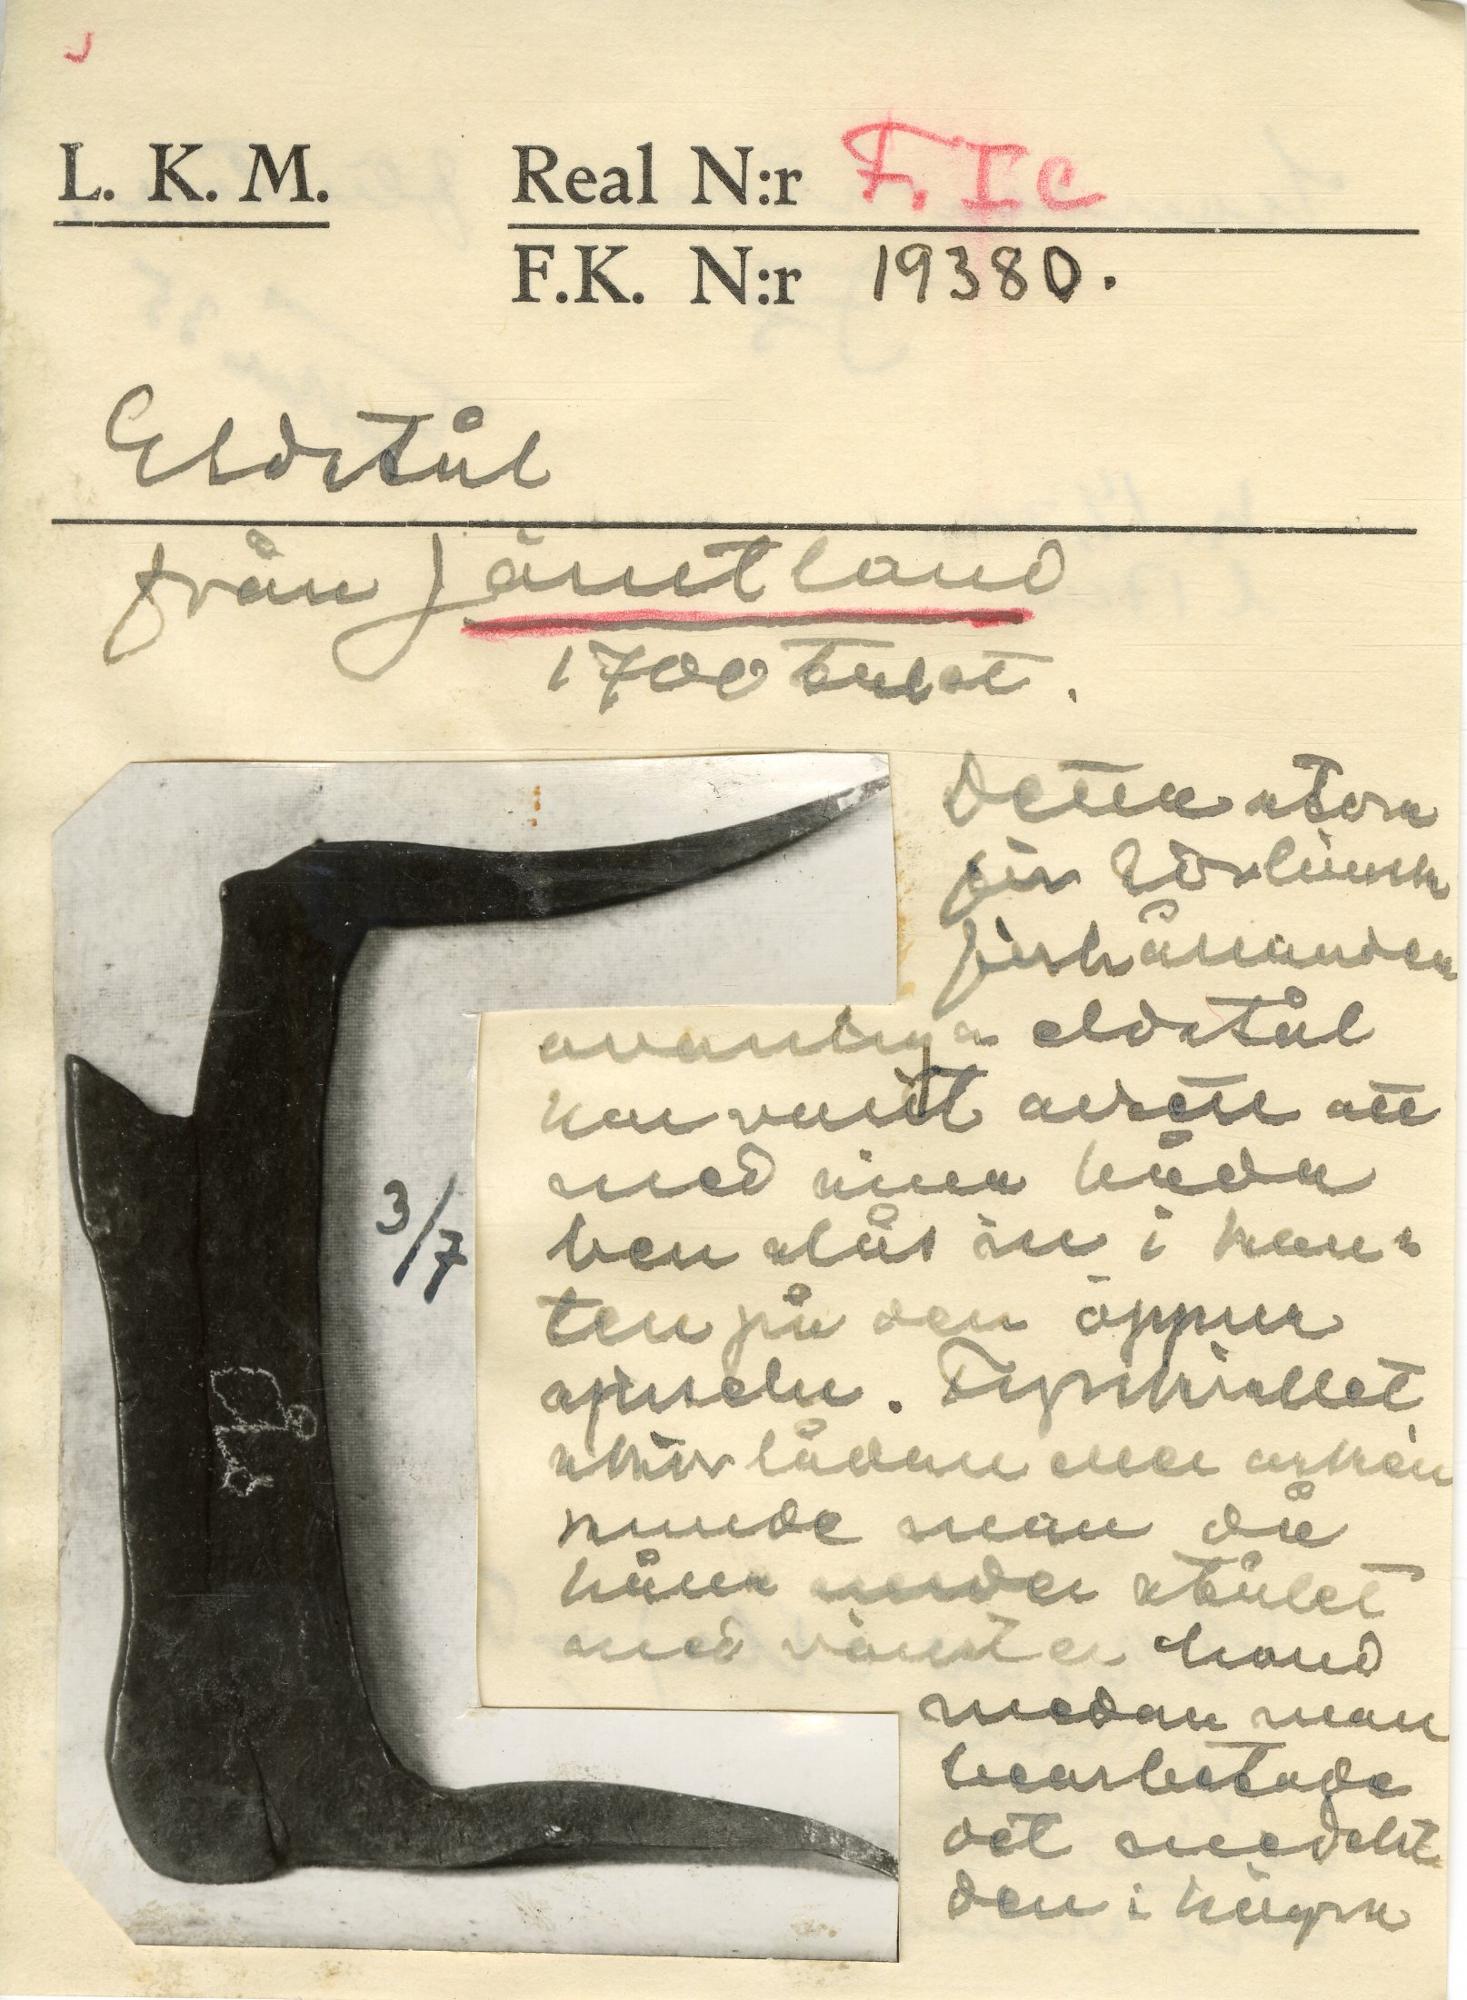 L. K. M.
Real N:r F. I c
F.K. N:r 19380.
Eldstål
från Jämtland
1700 talet.
Detta stora
för
förhållanden
ovanliga eldstål
har varit avsett att
med sina båda
ben slås in i kan-
ten på den öppna
spiseln. Fyrskrället
eller
kunde man då
hålla under stålet
med vänster hand
medan man
bearbetade
det medelst
den i högra
3/7